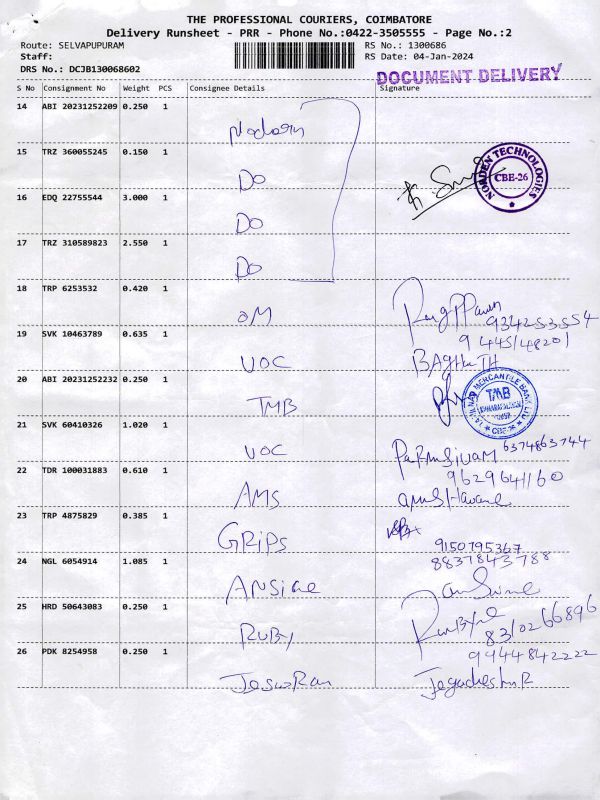 THE PROFESSIONAL COURIERS, COIMBATORE
Delivery Runsheet - PRR - Phone No.:0422-3505555 - Page No.:2
Route: SELVAPUPURAM
RS No.: 1300686
Staff:
RS Date: 04-Jan-2024
DRS No.: DCJB130068602
DOCUMENT DELIVERY
S No Consignment No Weight PCS Consignee Details Signature
14 ABI 20231252209 0.250 1
15 TRZ 360055245 0.150 1 DO
NORDEN TECHNOLOGIES
CBE-26
16 EDQ 22755544 3.000 1 DO
17 TRZ 310589823 2.550 1 DO
18 TRP 6253532 0.420 1 OM
9342535554
19 SVK 10463789 0.635 1 VOC
BAgHATH
20 ABI 20231252232 0.250 1 TMB
TAMILNAD MERCANTILE BANK LTD
TMB
21 SVK 60410326 1.020 1 VOC
PaRmuSiVaM 6374863744
22 TDR 100031883 0.610 1 AMS
9629641160
23 TRP 4875829 0.385 1 GRiPS
9150795367
24 NGL 6054914 1.085 1
8837843788
25 HRD 50643083 0.250 1 RUBY
8310266896
26 PDK 8254958 0.250 1
9944842222